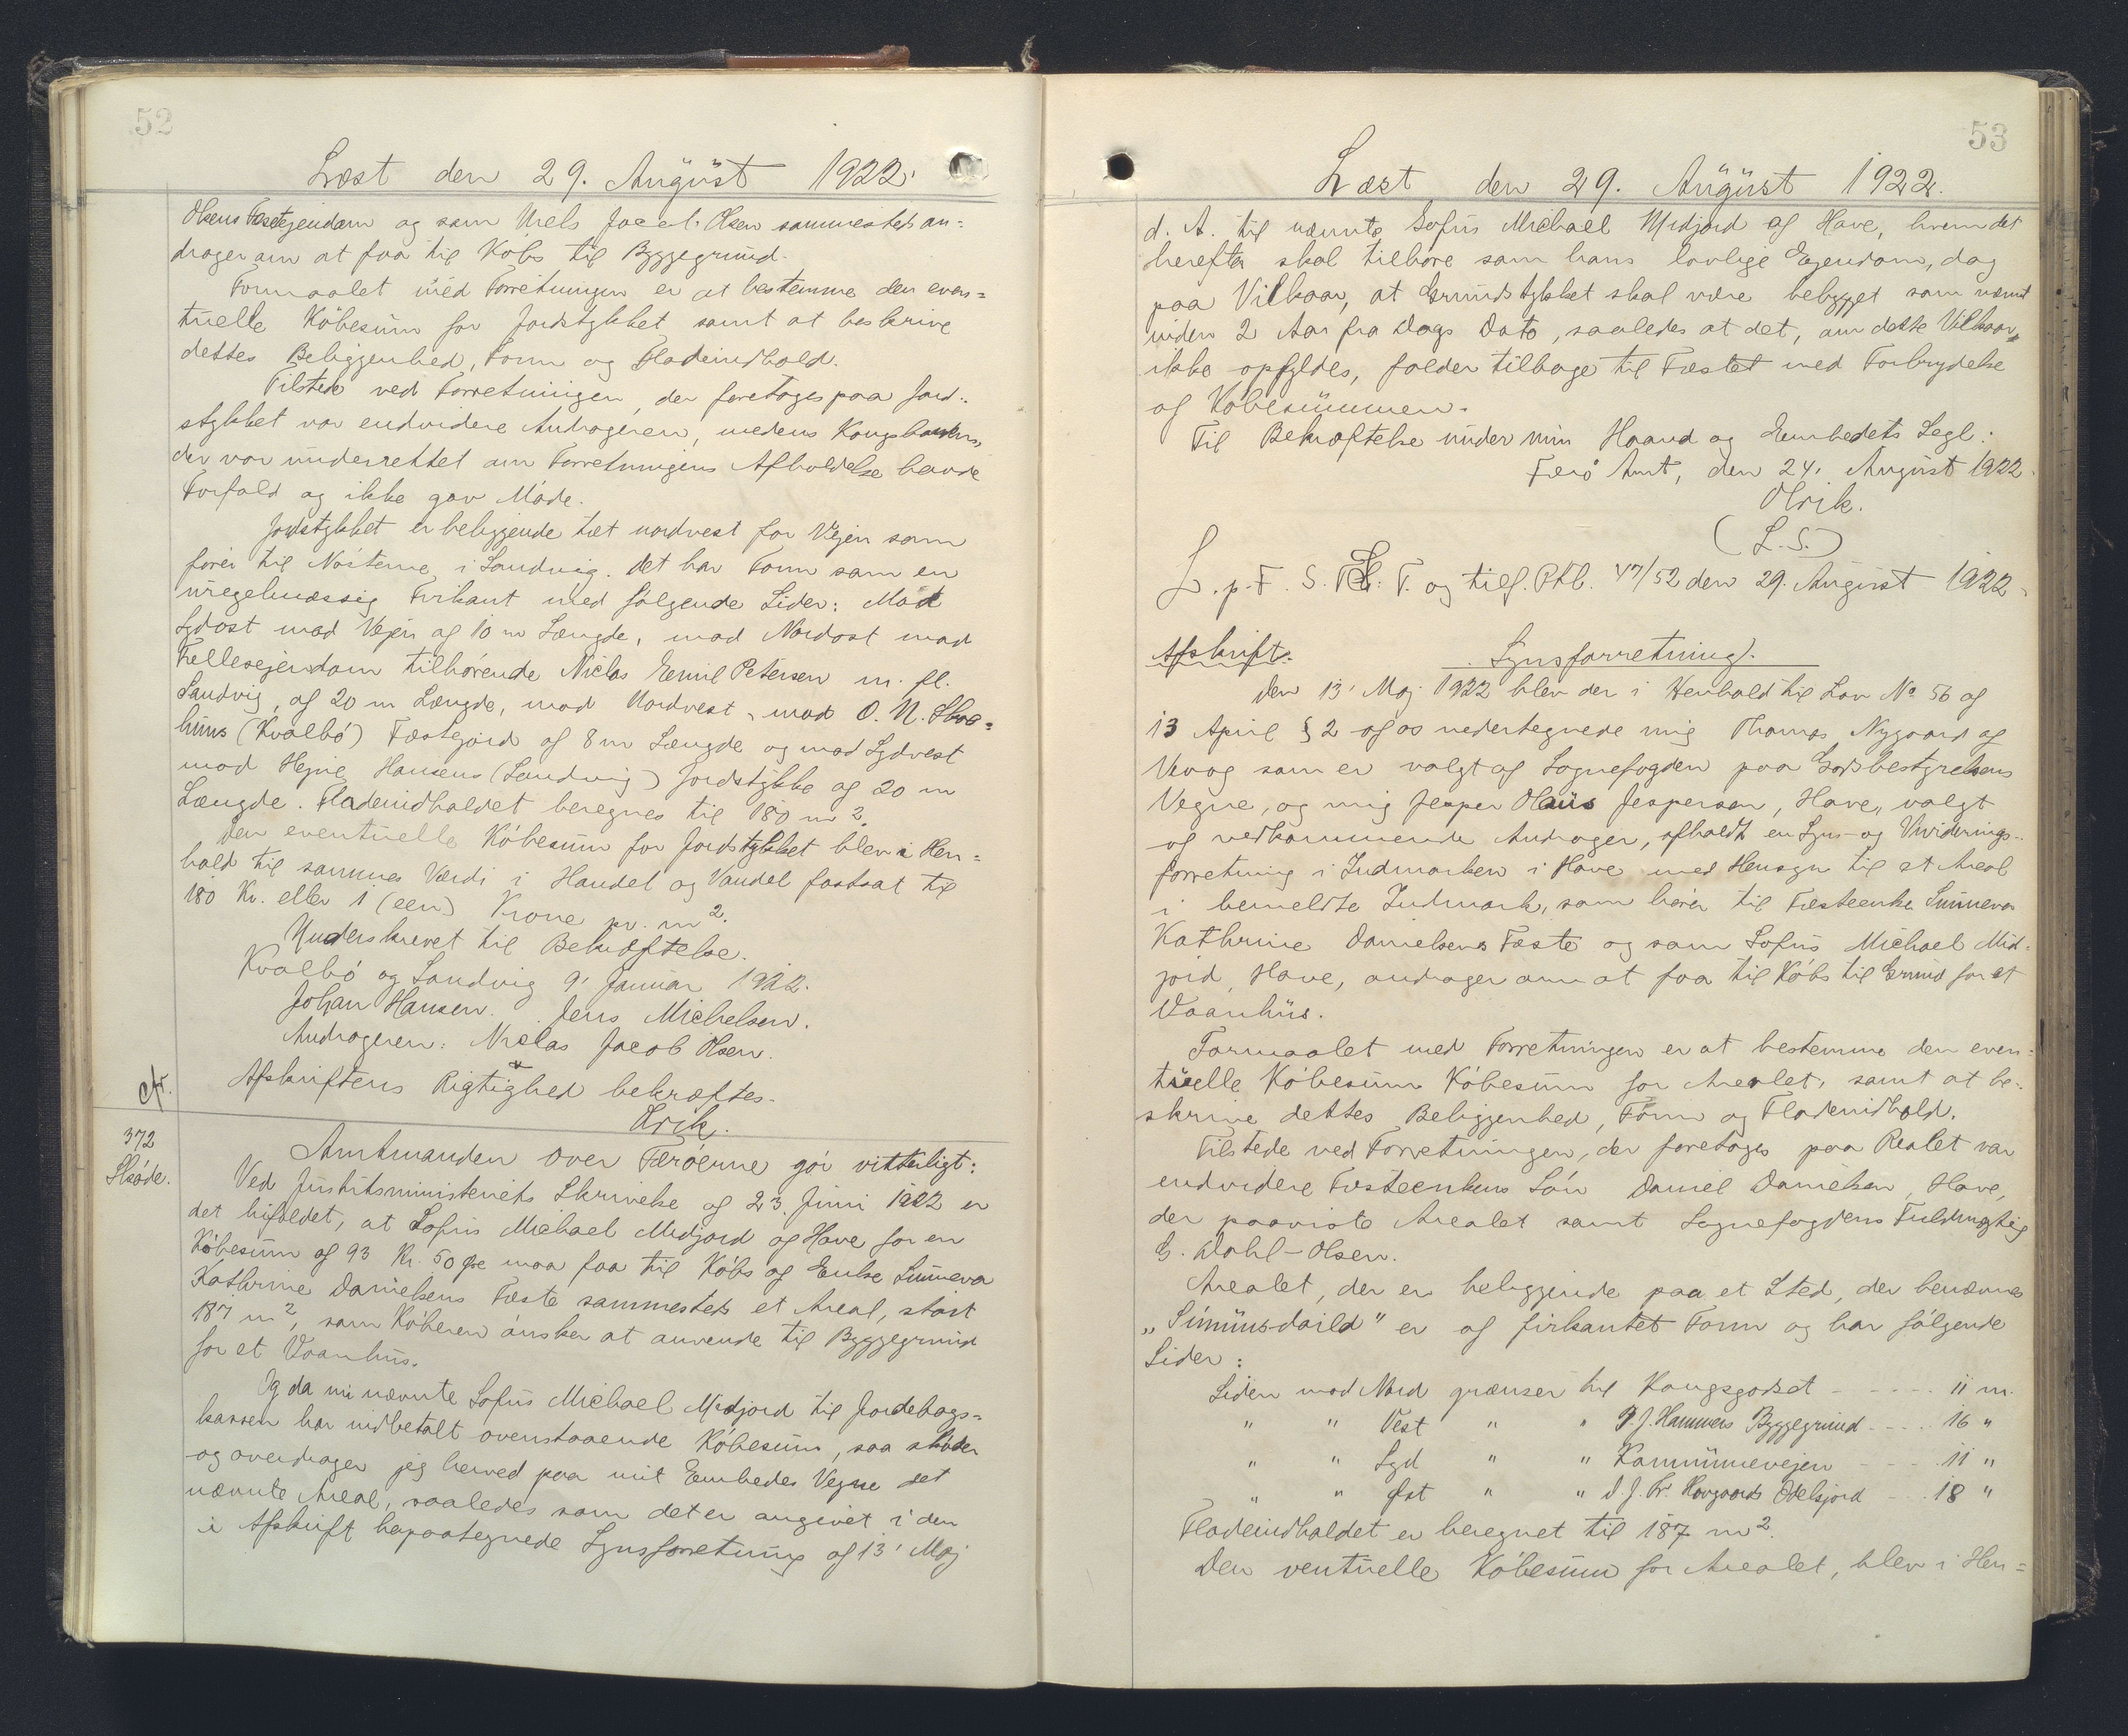 52
Læst den 29. August 1922.
Olsens Fæsteejendom og som Niels Jacob Olsen sammesteds an=
drager om at faa til Købs til Byggegrund.
Formaalet med Forretningen er at bestemme den even=
tuelle Købesum for Jordstykket samt at beskrive
dettes Beliggenhed, Form og Fladeindhold.
Tilstede ved Forretningen, der foretoges paa Jord-
stykket var endvidere Andrageren, medens Kongsbonden,
der var underrettet om Forretningens Afholdelse havde
Forfald og ikke gav Møde.
Jordstykket er beliggende tæt nordvest for Vejen som
fører til Nøsterne i Sandvig. Det har Form som en
uregelmæssig Firkant med følgende Sider: Mod
Sydost mod Vejen af 10 m Længde, mod Nordost mod
Fællesejendom tilhørende Niclas Emil Petersen m. fl.
Sandvig, af 20 m Længde, mod Nordvest, mod O. N. Skaa=
huus (Kvalbø) Fæstejord af 8 m Længde og mod Sydvest
mod Hejne Hansens (Sandvig) Jordstykke af 20 m
Længde. Fladeindholdet beregnes til 180 m².
Den eventuelle Købesum for Jordstykket blev i Hen=
hold til sammes Værdi i Handel og Vandel fastsat til
180 Kr. eller 1 (een) Krone pr. m².
Underskrevet til Bekræftelse.
Kvalbø og Sandvig 9' Januar 1922.
Johan Hansen. Jens Michelsen.
Andrageren: Niclas Jacob Olsen.
Afskriftens Rigtighed bekræftes.
Olrik.
cfr.
372
Skøde.
Amtmanden over Færøerne gør vitterligt:
Ved Justitsministeriets Skrivelse af 23. Juni 1922 er
det bifaldet, at Sofus Michael Midjord af Hove for en
Købesum af 93 Kr. 50 Øre maa faa til Købs af Enke Sunneva
Kathrine Danielsens Fæste sammesteds et Areal, stort
187 m², som Køberen ønsker at anvende til Byggegrund
for et Vaanhus.
Og da nu nævnte Sofus Michael Midjord til Jordebogs=
kassen har indbetalt ovenstaaende Købesum, saa skøder
og overdrager jeg herved paa mit Embedes Vegne det
nævnte Areal, saaledes som det er angivet i den
i Afskrift hepaategnede Synsforretning af 13' Maj
53
Læst den 29. August 1922.
d. A. til nævnte Sofus Michael Midjord af Hove, hvem det
herefter skal tilhøre som hans lovlige Ejendom, dog
paa Vilkaar, at Grundstykket skal være bebygget som nævnt
inden 2 Aar fra Dags Dato, saaledes at det, om dette Vilkaar
ikke opfyldes, falder tilbage til Fæstet med Forbrydelse
af Købesummen.
Til Bekræftelse under min Haand og Embedets Segl:
Færø Amt, den 24. August 1922.
Olrik.
(L. S.)
L. p. F. S. T. og tilf. Ptb. 47/52 den 29. August 1922.
Afskrift. Synsforretning.
Den 13' Maj 1922 blev der i Henhold til Lov No 56 af
13 April § 2 af os undertegnede mig Thomas Nygaard af
Vaag som er valgt af Sognefogden paa Godsbestyrelsens
Vegne, og mig Jesper Olaus Jespersen, Hove, valgt
af vedkommende Andrager, afholdt en Syns- og Vurderings-
forretning i Indmarken i Hove med Hensyn til et Areal
i bemeldte Indmark, som hører til Fæsteenke Sunneva
Kathrine Danielsens Fæste og som Sofus Michael Mid-
jord, Hove, andrager om at faa til Købs til Grund for et
Vaanhus.
Formaalet med Forretningen er at bestemme den even=
tuelle Købesum Købesum for Arealet, samt at be-
skrive dettes Beliggenhed, Form og Fladeindhold.
Tilstede ved Forretningen, der foretoges paa Realet var
endvidere Fæsteenkens Søn Daniel Danielsen, Hove,
der paaviste Arealet samt Sognefogdens Fuldmægtig
G. Dahl-Olsen.
Arealet, der er beliggende paa et Sted, der benævnes
„Simunsdaild" er af firkantet Form og har følgende
Sider:
Siden mod Nord grænser til Kongsgodset - - - - - 11 m.
" " Vest " " P. J. Hammers Byggegrund - - - - 16 "
" " Syd " " Kommunevejen - - - - 11 "
" " Øst " " D. J. Fr. Hovgaards Odelsjord - - - 18 "
Fladeindholdet er beregnet til 187 m².
Den ventuelle Købesum for Arealet, blev i Hen=